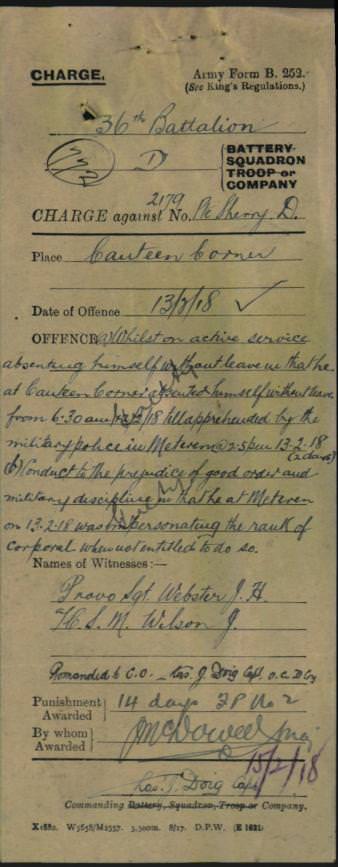 CHARGE.
Army Form B. 252.
(See King's Regulations.)
36th Battalion
772
D
BATTERY
SQUADRON
TROOP or
COMPANY
2179
CHARGE against No. McSherry. D.
Place Canteen Corner
Date of Offence 13/2/18 ✓
OFFENCE a) Whilst on active service
absenting himself without leave in that he
at Canteen Corner absented himself without leave
from 6.30 am 12/2/18 till apprehended by the
military police in Meteren @ 2.5 pm 13.2.18
(2 days)
b) Conduct to the prejudice of good order and
military discipline in that he at Meteren
on 13.2.18 was impersonating the rank of
corporal when not entitled to do so.
Names of Witnesses:—
Provo Sgt. Webster J. H.
C. S. M. Wilson J.
Remanded to C.O. — Jas. J. Doig Capt. O.C. D Coy
Punishment Awarded 14 days FP No 2
By whom Awarded J McDowell Maj
15/2/18
Jas. J. Doig Capt
Commanding Battery, Squadron, Troop or Company.
X1882. W5658/M2557. 3,500m. 8/17. D.P.W. (E 1621)